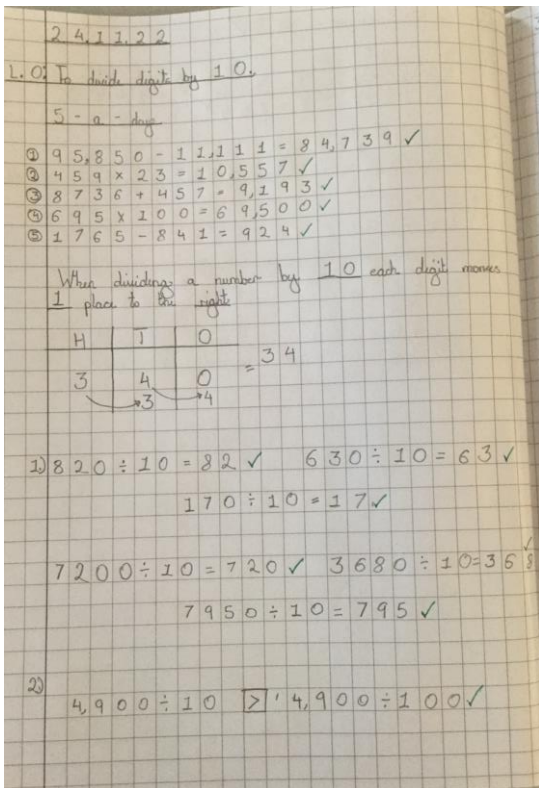 24.11.22
L.O: To divide digits by 10.
5-a-day
① 95,850 - 11,111 = 84,739 ✓
② 459 × 23 = 10,557 ✓
③ 8736 + 457 = 9,193 ✓
④ 695 × 100 = 69,500 ✓
⑤ 1765 - 841 = 924 ✓
When dividing a number by 10 each digit moves
1 place to the right
H T O
3 4 0 = 34
3 4
1.) 820 ÷ 10 = 82 ✓ 630 ÷ 10 = 63 ✓
170 ÷ 10 = 17 ✓
7200 ÷ 10 = 720 ✓ 3680 ÷ 10 = 368 ✓
7950 ÷ 10 = 795 ✓
2.)
4,900 ÷ 10 > 4,900 ÷ 100 ✓